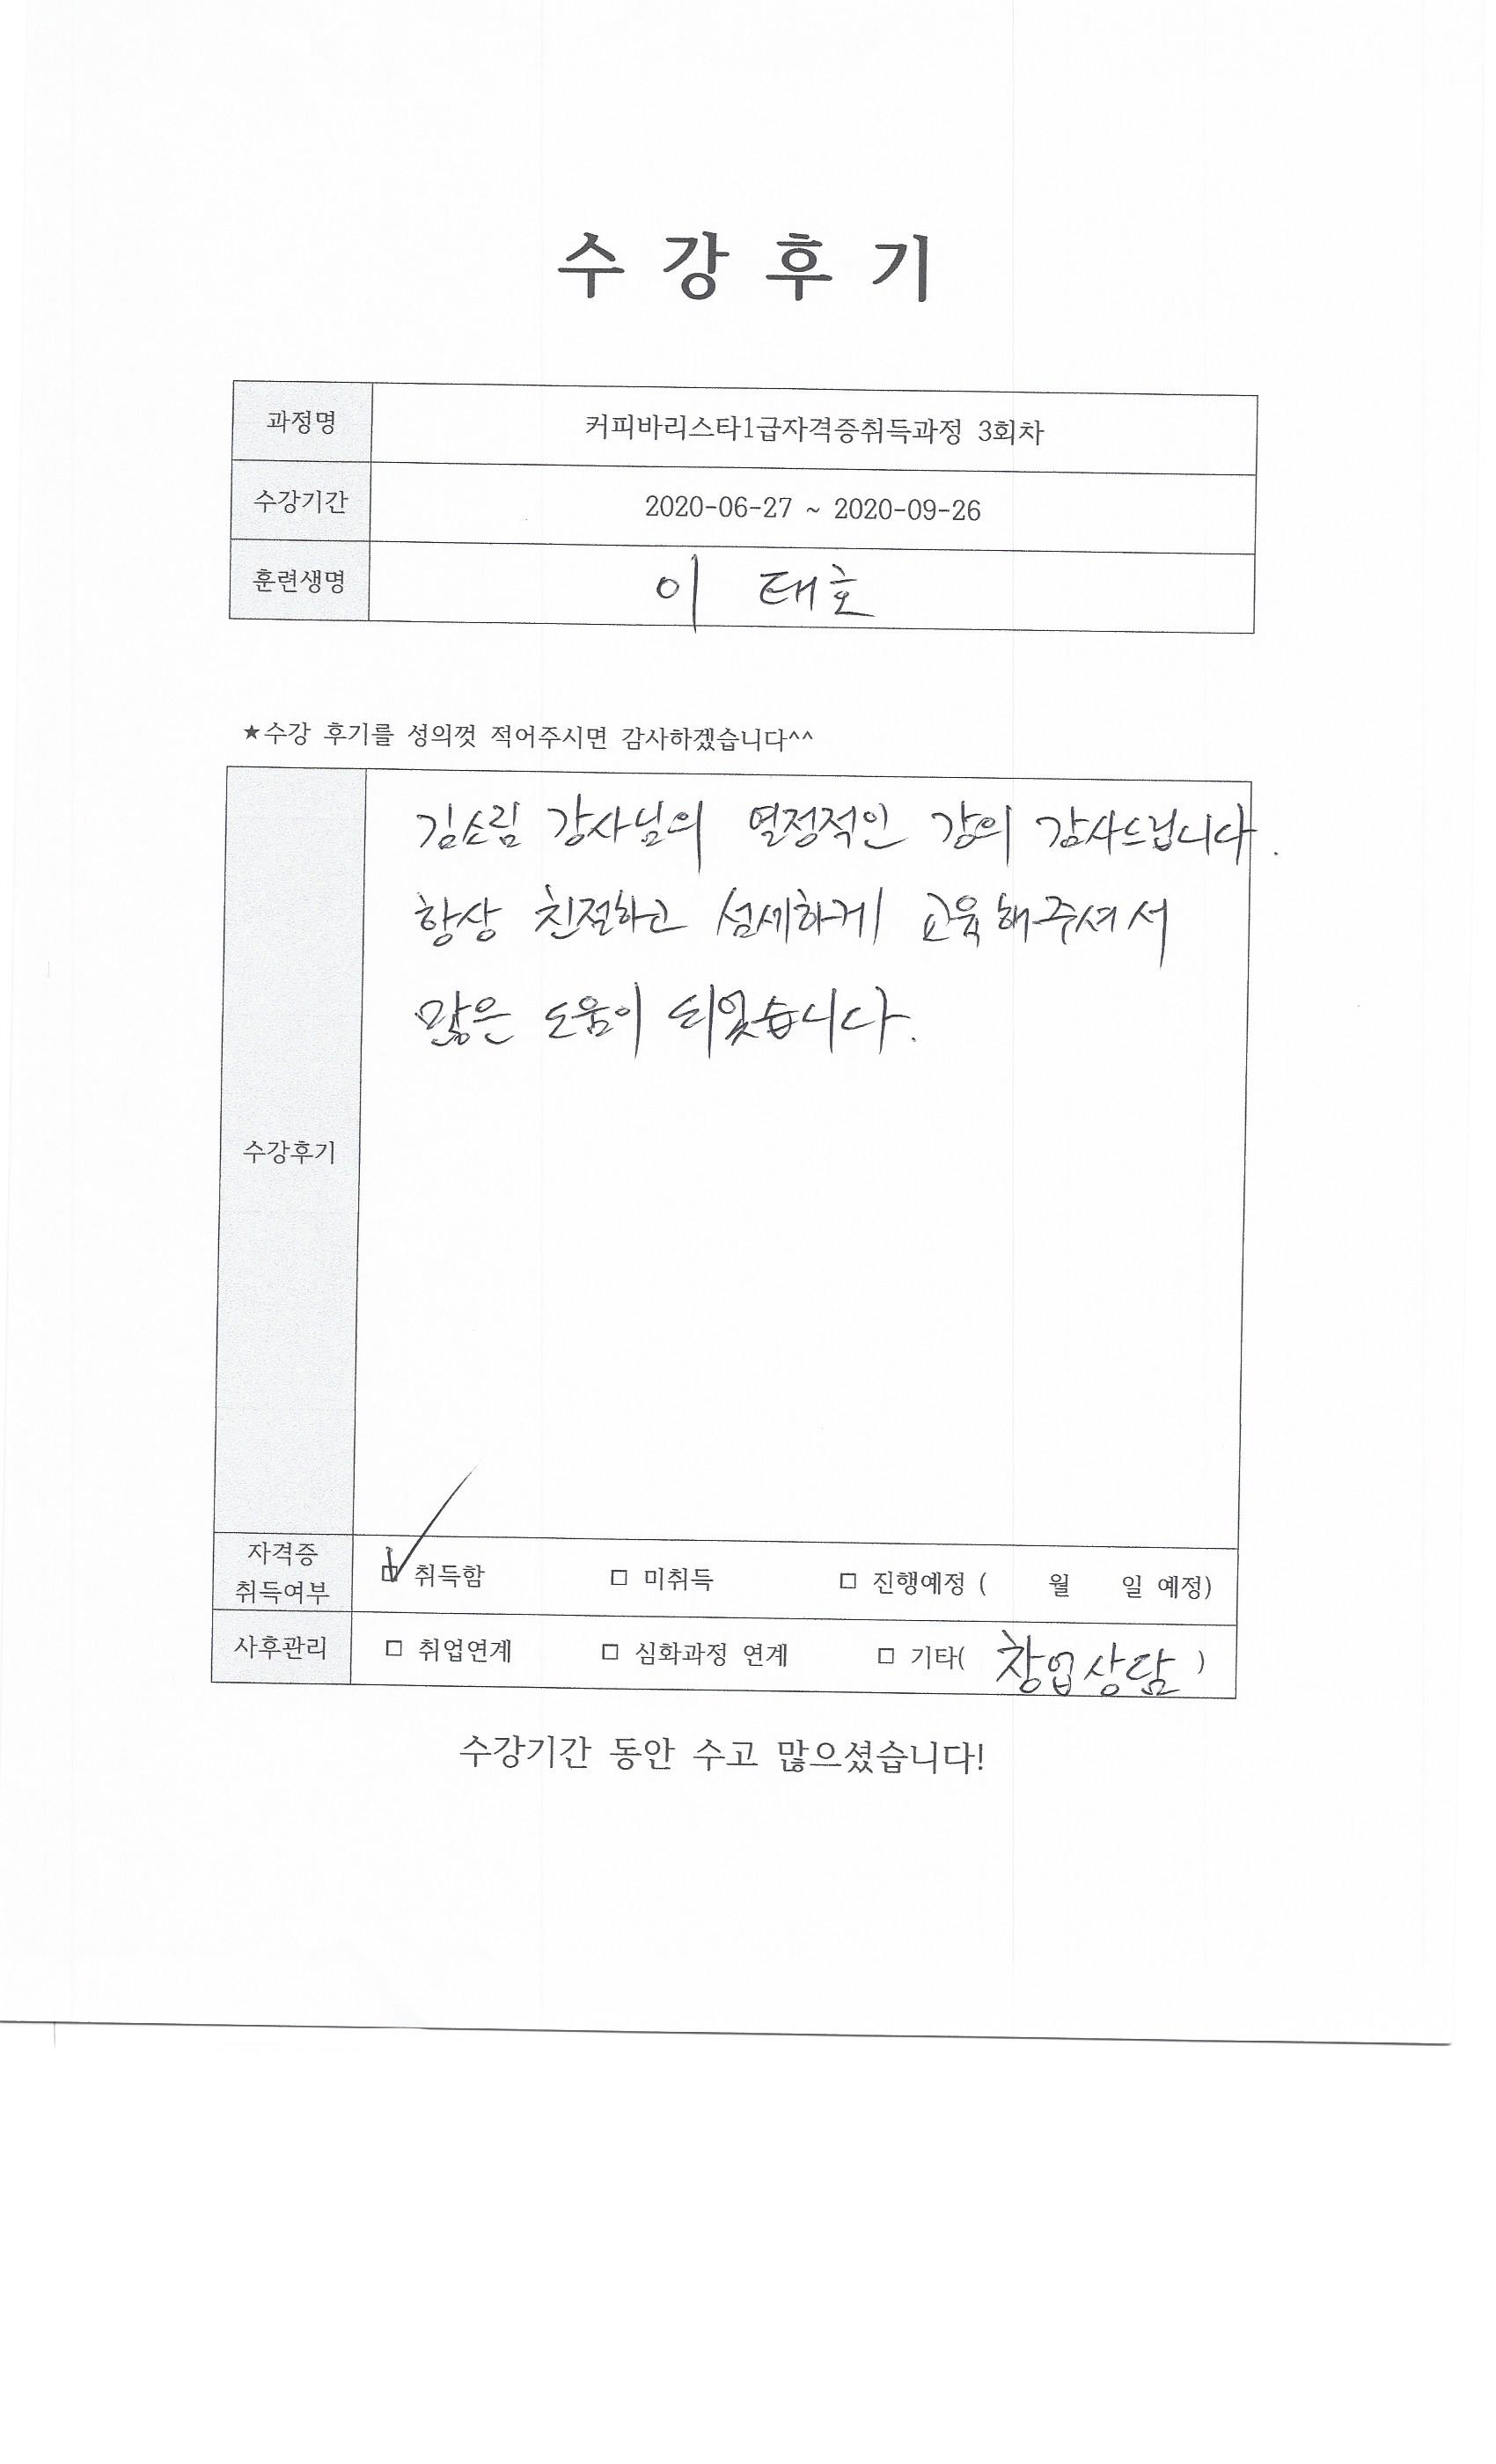 수 강 후 기
과정명 커피바리스타1급자격증취득과정 3회차
수강기간 2020-06-27 ~ 2020-09-26
훈련생명 이 태호
★수강 후기를 성의껏 적어주시면 감사하겠습니다^^
김소림 강사님의 열정적인 강의 감사드립니다.
항상 친절하고 섬세하게 교육해주셔서
많은 도움이 되었습니다.
수강후기
자격증
취득여부 □ 취득함 □ 미취득 □ 진행예정 ( 월 일 예정)
사후관리 □ 취업연계 □ 심화과정 연계 □ 기타( 창업상담 )
수강기간 동안 수고 많으셨습니다!